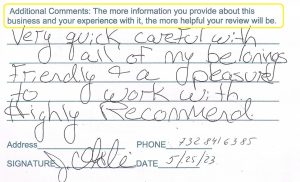 Additional Comments: The more information you provide about this
business and your experience with it, the more helpful your review will be.
Very quick careful with
all of my belongings
Friendly & a pleasure
to work with.
Highly Recommend
Address PHONE 732 841 6385
SIGNATURE DATE 5/25/23